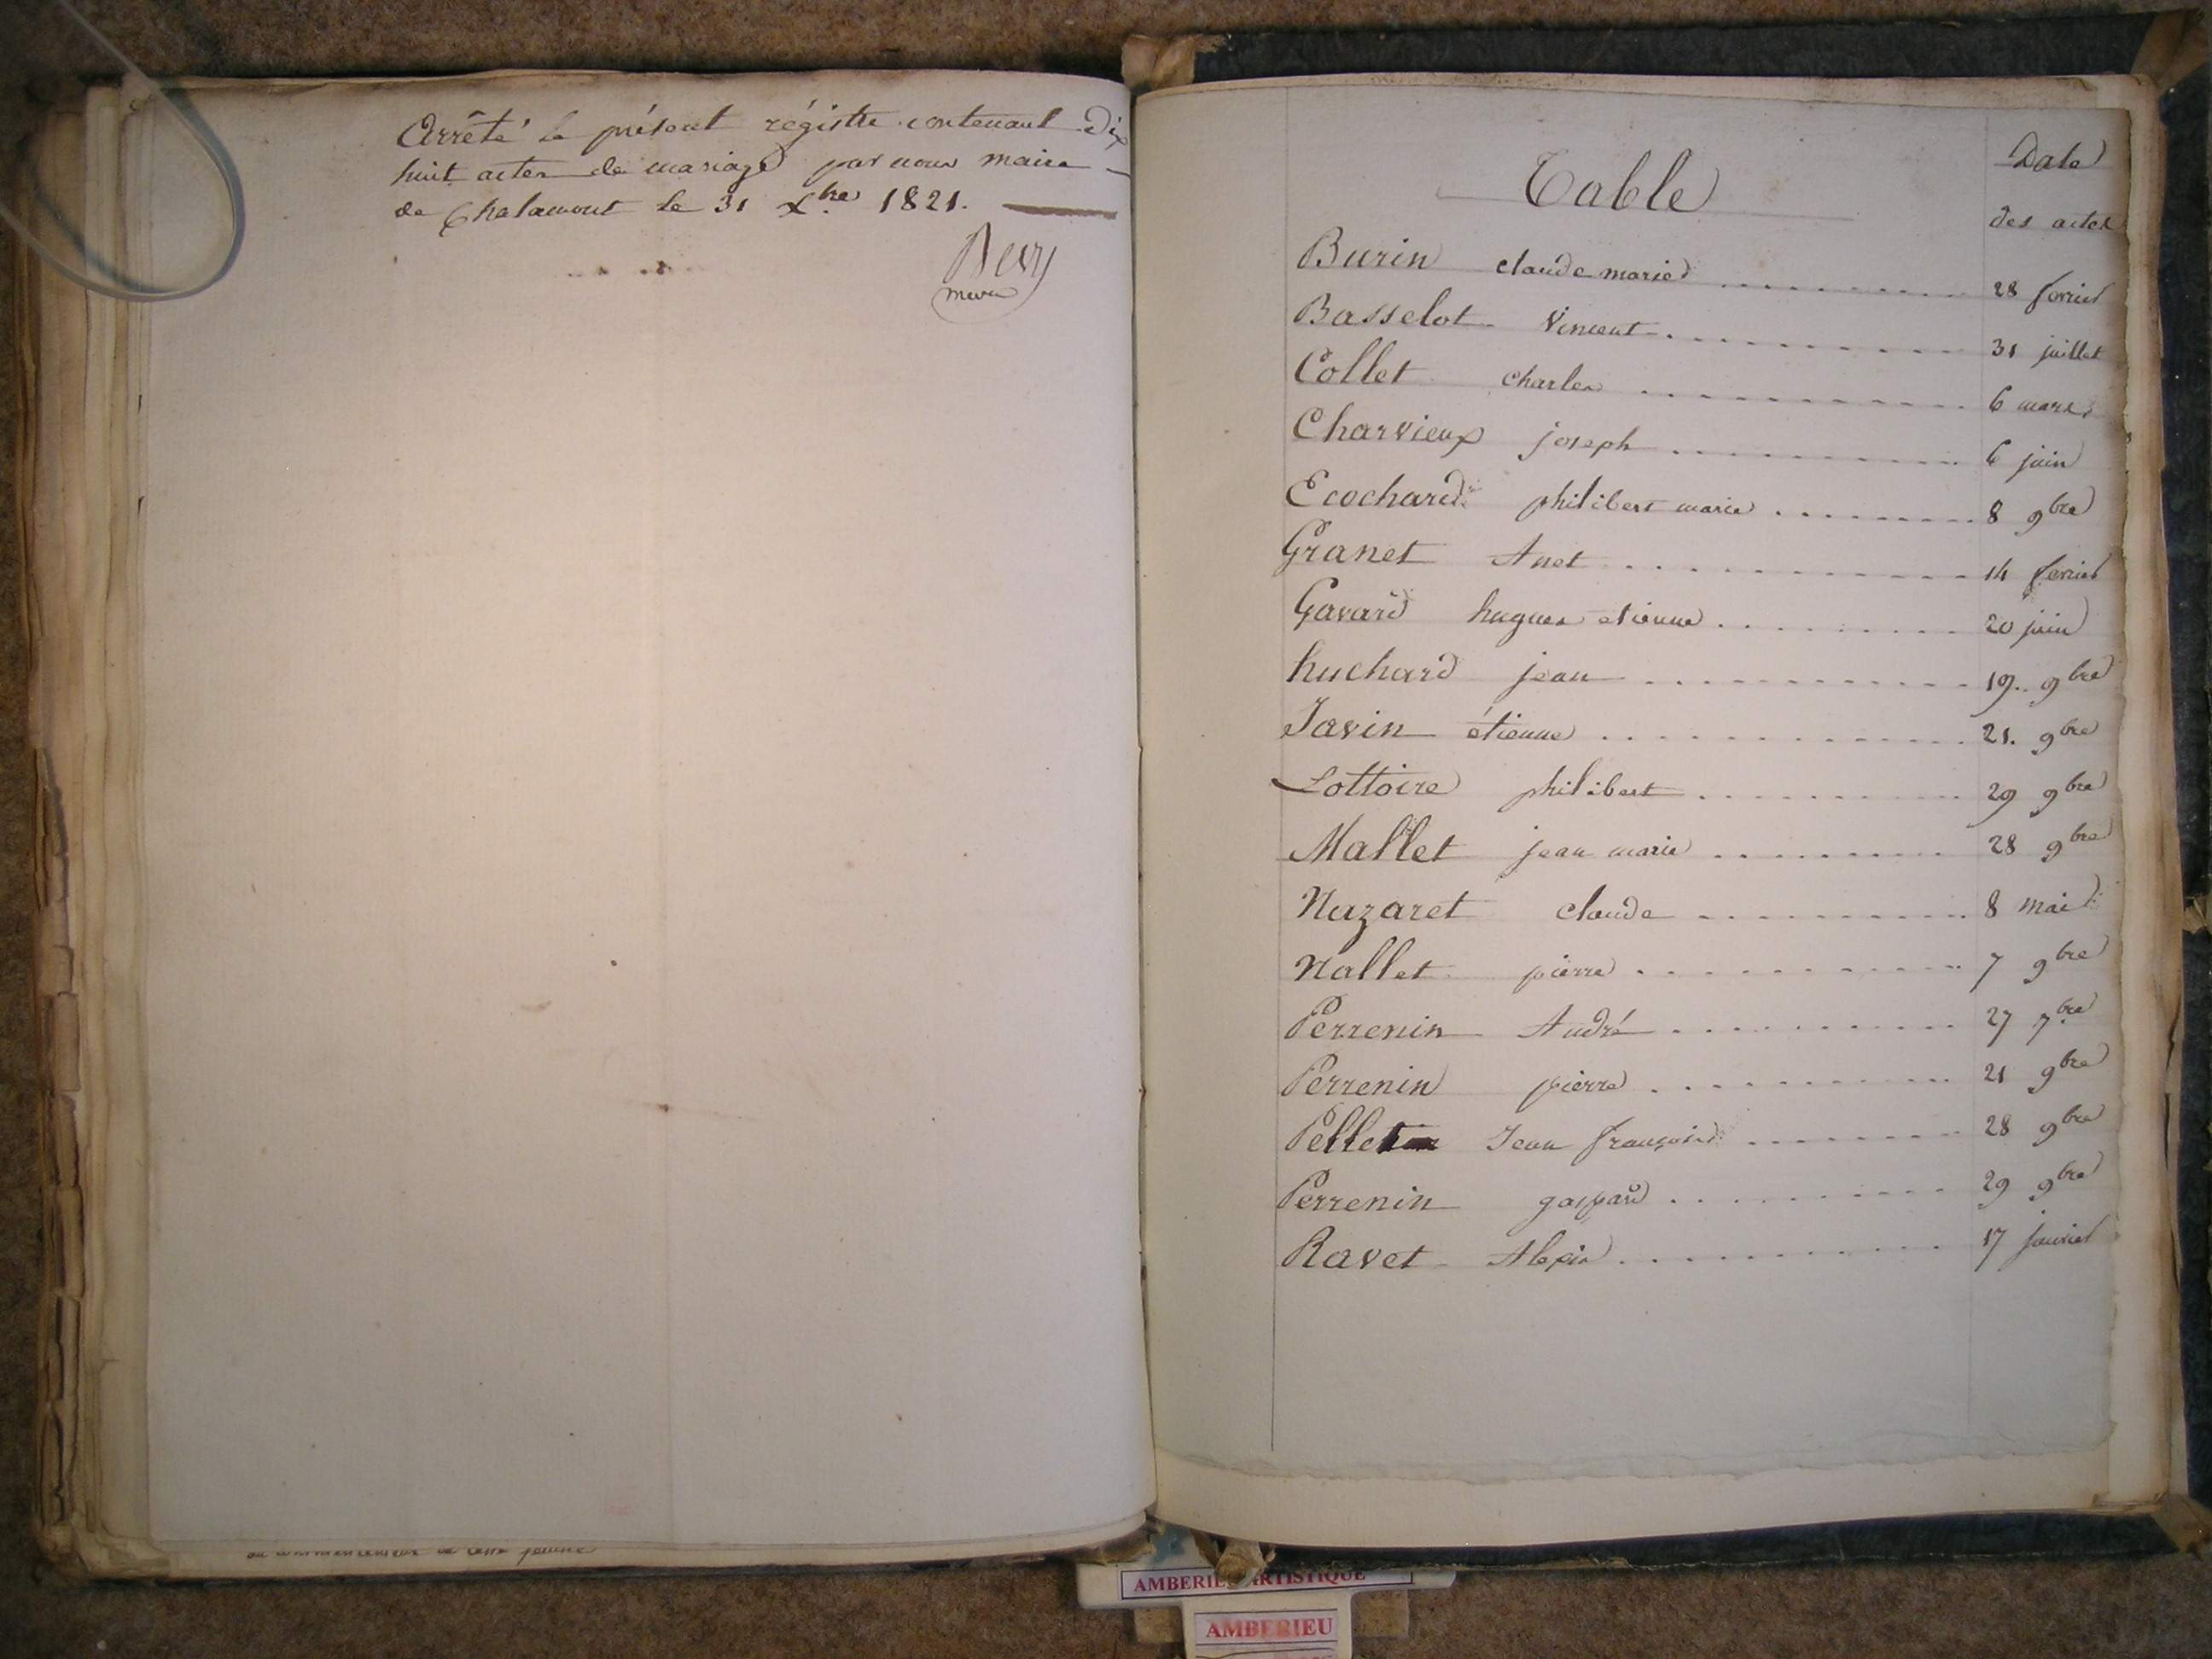 Arrêté le présent régistre contenant dix
huit actes de mariage par nous maire
de Chalamont le 31 Xbre 1821.
maire
Table
Date
des actes
Burin claude marie 28 fevrier
Basselot Vincent 31 juillet
Collet charles 6 mars
Charvieux joseph 6 juin
Ecochard philibert marie 8 9bre
Granet Anet 14 fevrier
Gavard hugues etienne 20 juin
huchard jean 19. 9bre
Javin étienne 21. 9bre
Lottoire philibert 29 9bre
Mallet jean marie 28 9bre
Nazaret claude 8 mai
Nallet pierre 7 9bre
Perrenin André 27 7bre
Perrenin pierre 21 9bre
Pellet Jean françois 28 9bre
Perrenin gaspard 29 9bre
Ravet Alexis 17 janvier
AMBERIEU ARTISTIQUE
AMBERIEU